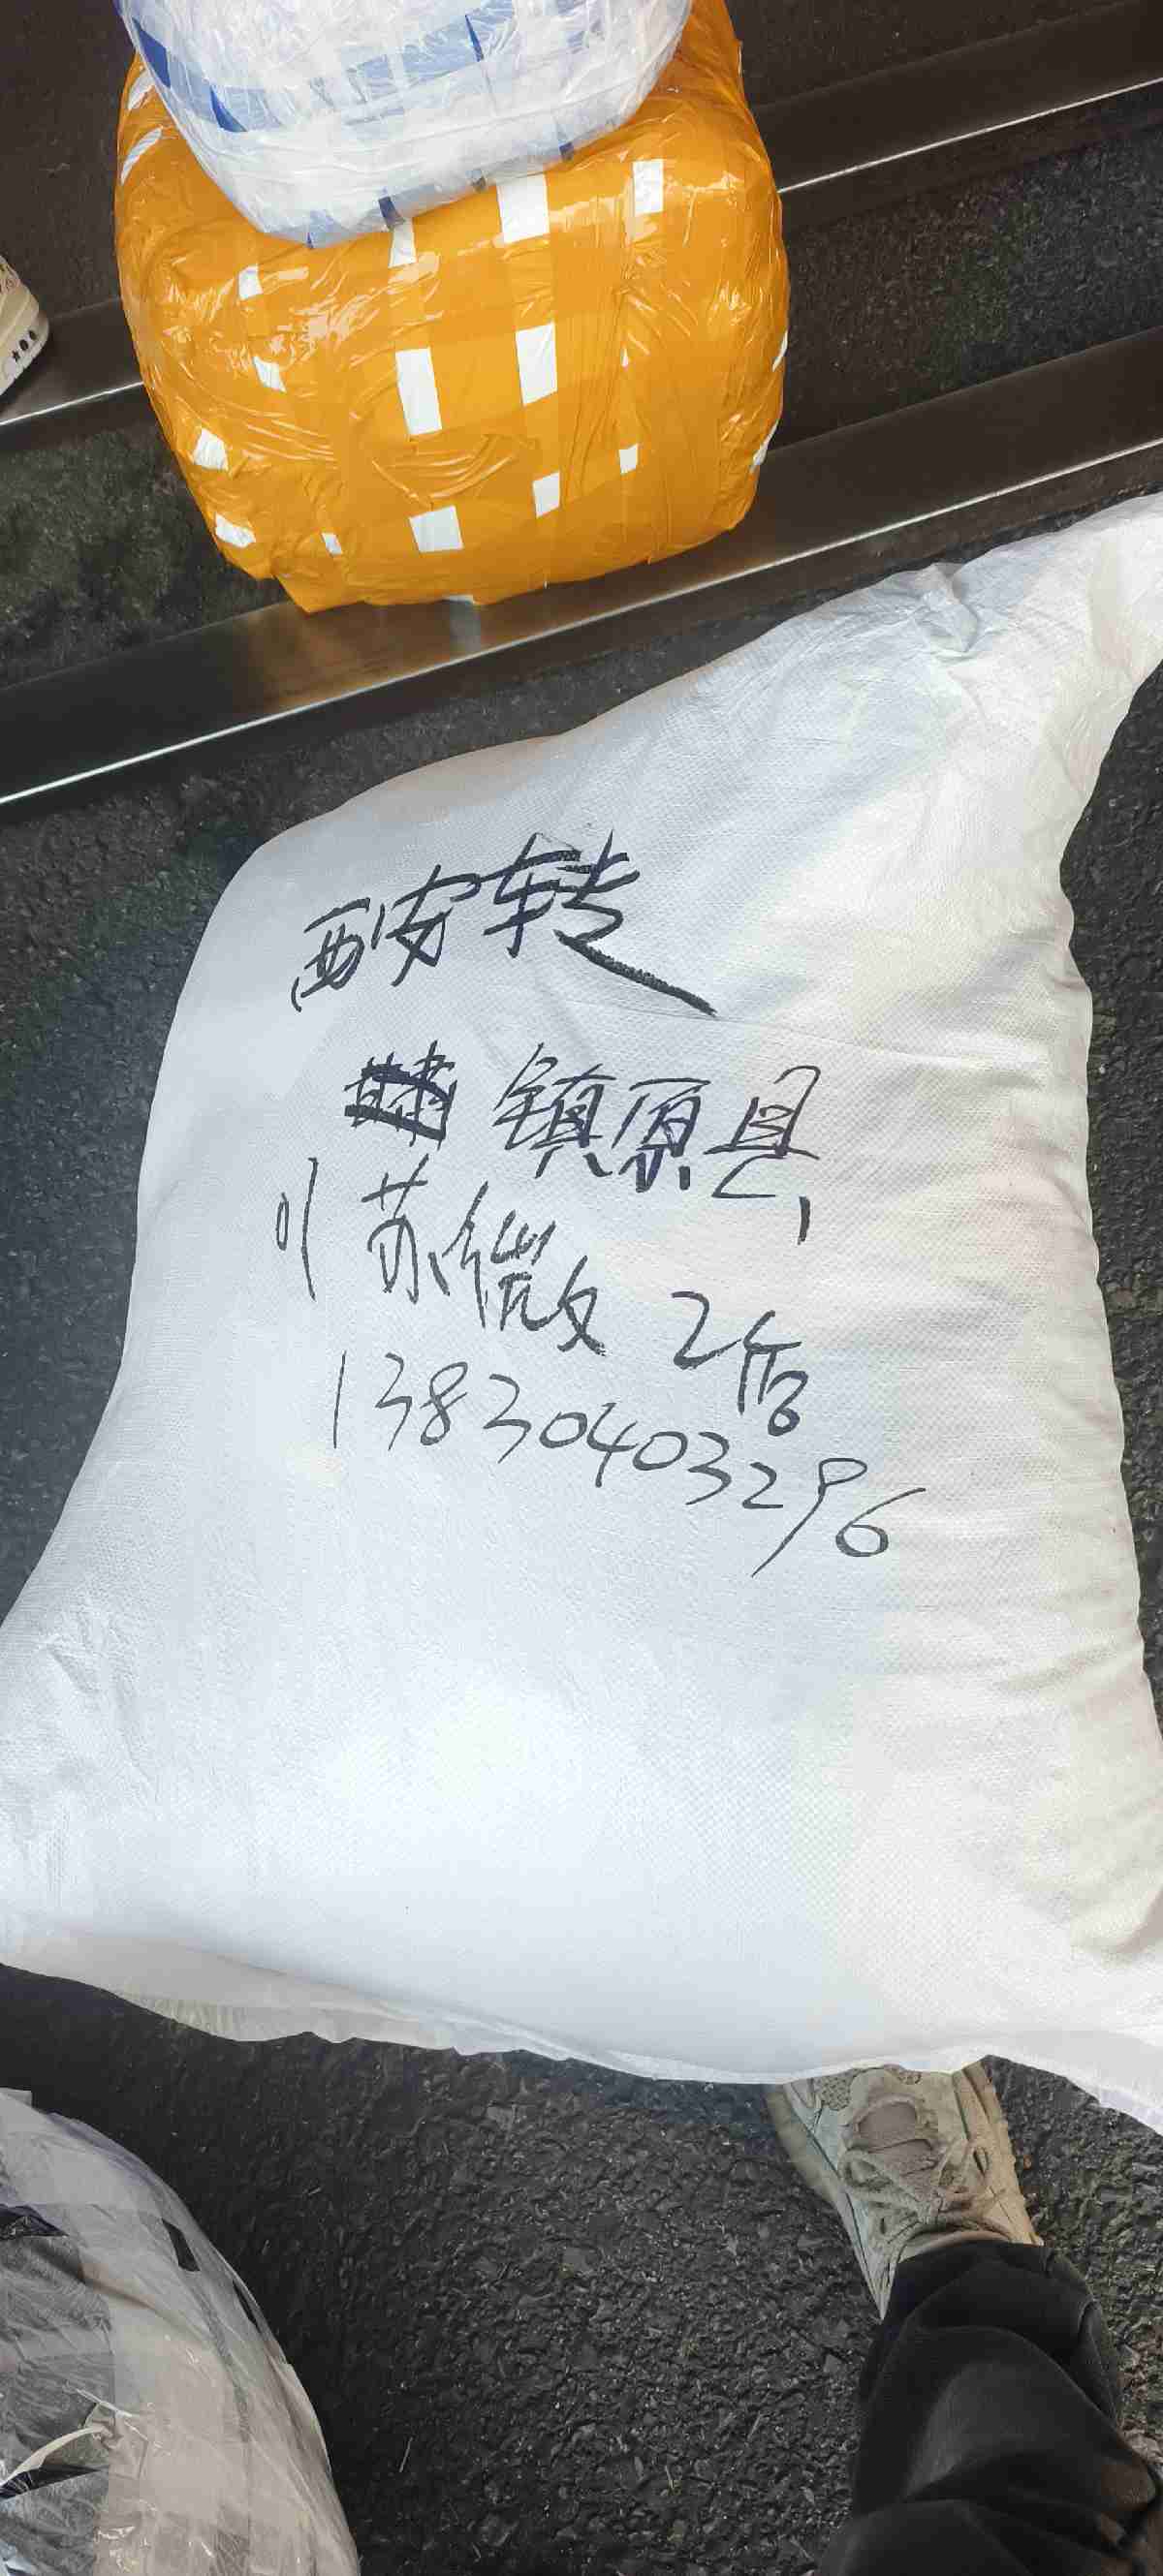 西安转
镇原县
苏微 2件
13830403296